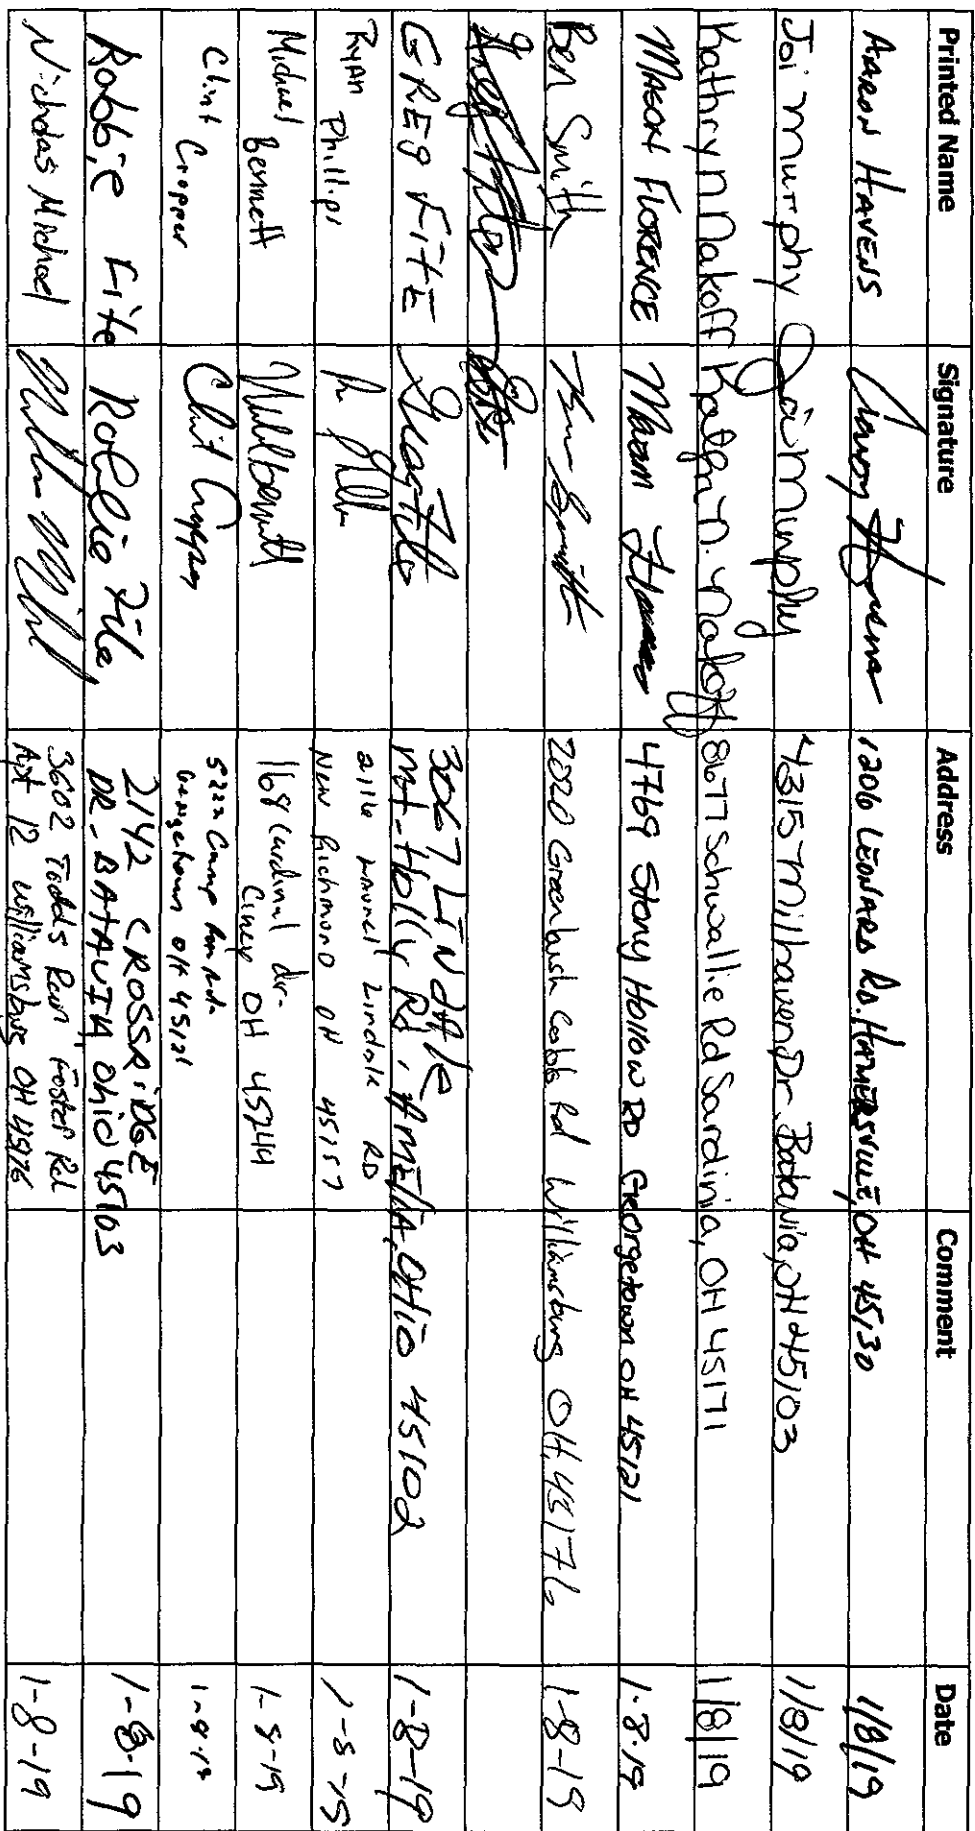 Printed Name Signature Address Comment Date
AARON HAVENS Aaron Havens 1206 LEONARD RD. HAMERSVILLE, OH 45130 1/8/19
Joi Murphy Joi Murphy 4315 Milhaven Dr. Batavia, OH 45103 1/8/19
Kathryn Nakoff Kathryn Nakoff 8677 Schwallie Rd Sardinia, OH 45171 1/8/19
MASON FLORENCE Mason 4769 Stony Hollow RD Georgetown OH 45121 1-8-19
Ben Smith Ben Smith 2020 Greenbush Cobb Rd Williamsburg OH, 45176 1-8-19
GREg FitE Greg Fite 3067 LiNdAlE
Mt-Holly Rd, AmEliA, OHio 45102 1-8-19
RYAN Phillips 2116 Laurel Lindale RD
New Richmond OH 45157 1-8-19
Michael Bennett Michael Bennett 168 Cardinal dr-
Cincy OH 45244 1-8-19
Clint Cropper Clint Cropper 5222 Camp Run Rd
Georgetown OH 45121 1-8-19
Robbie Fite Robbie Fite 2142 CROSSRiDGE
DR- BATAVIA Ohio 45103 1-8-19
Nicholas Michael 3602 Todds Run Foster Rd
Apt 12 Williamsburg OH 45176 1-8-19